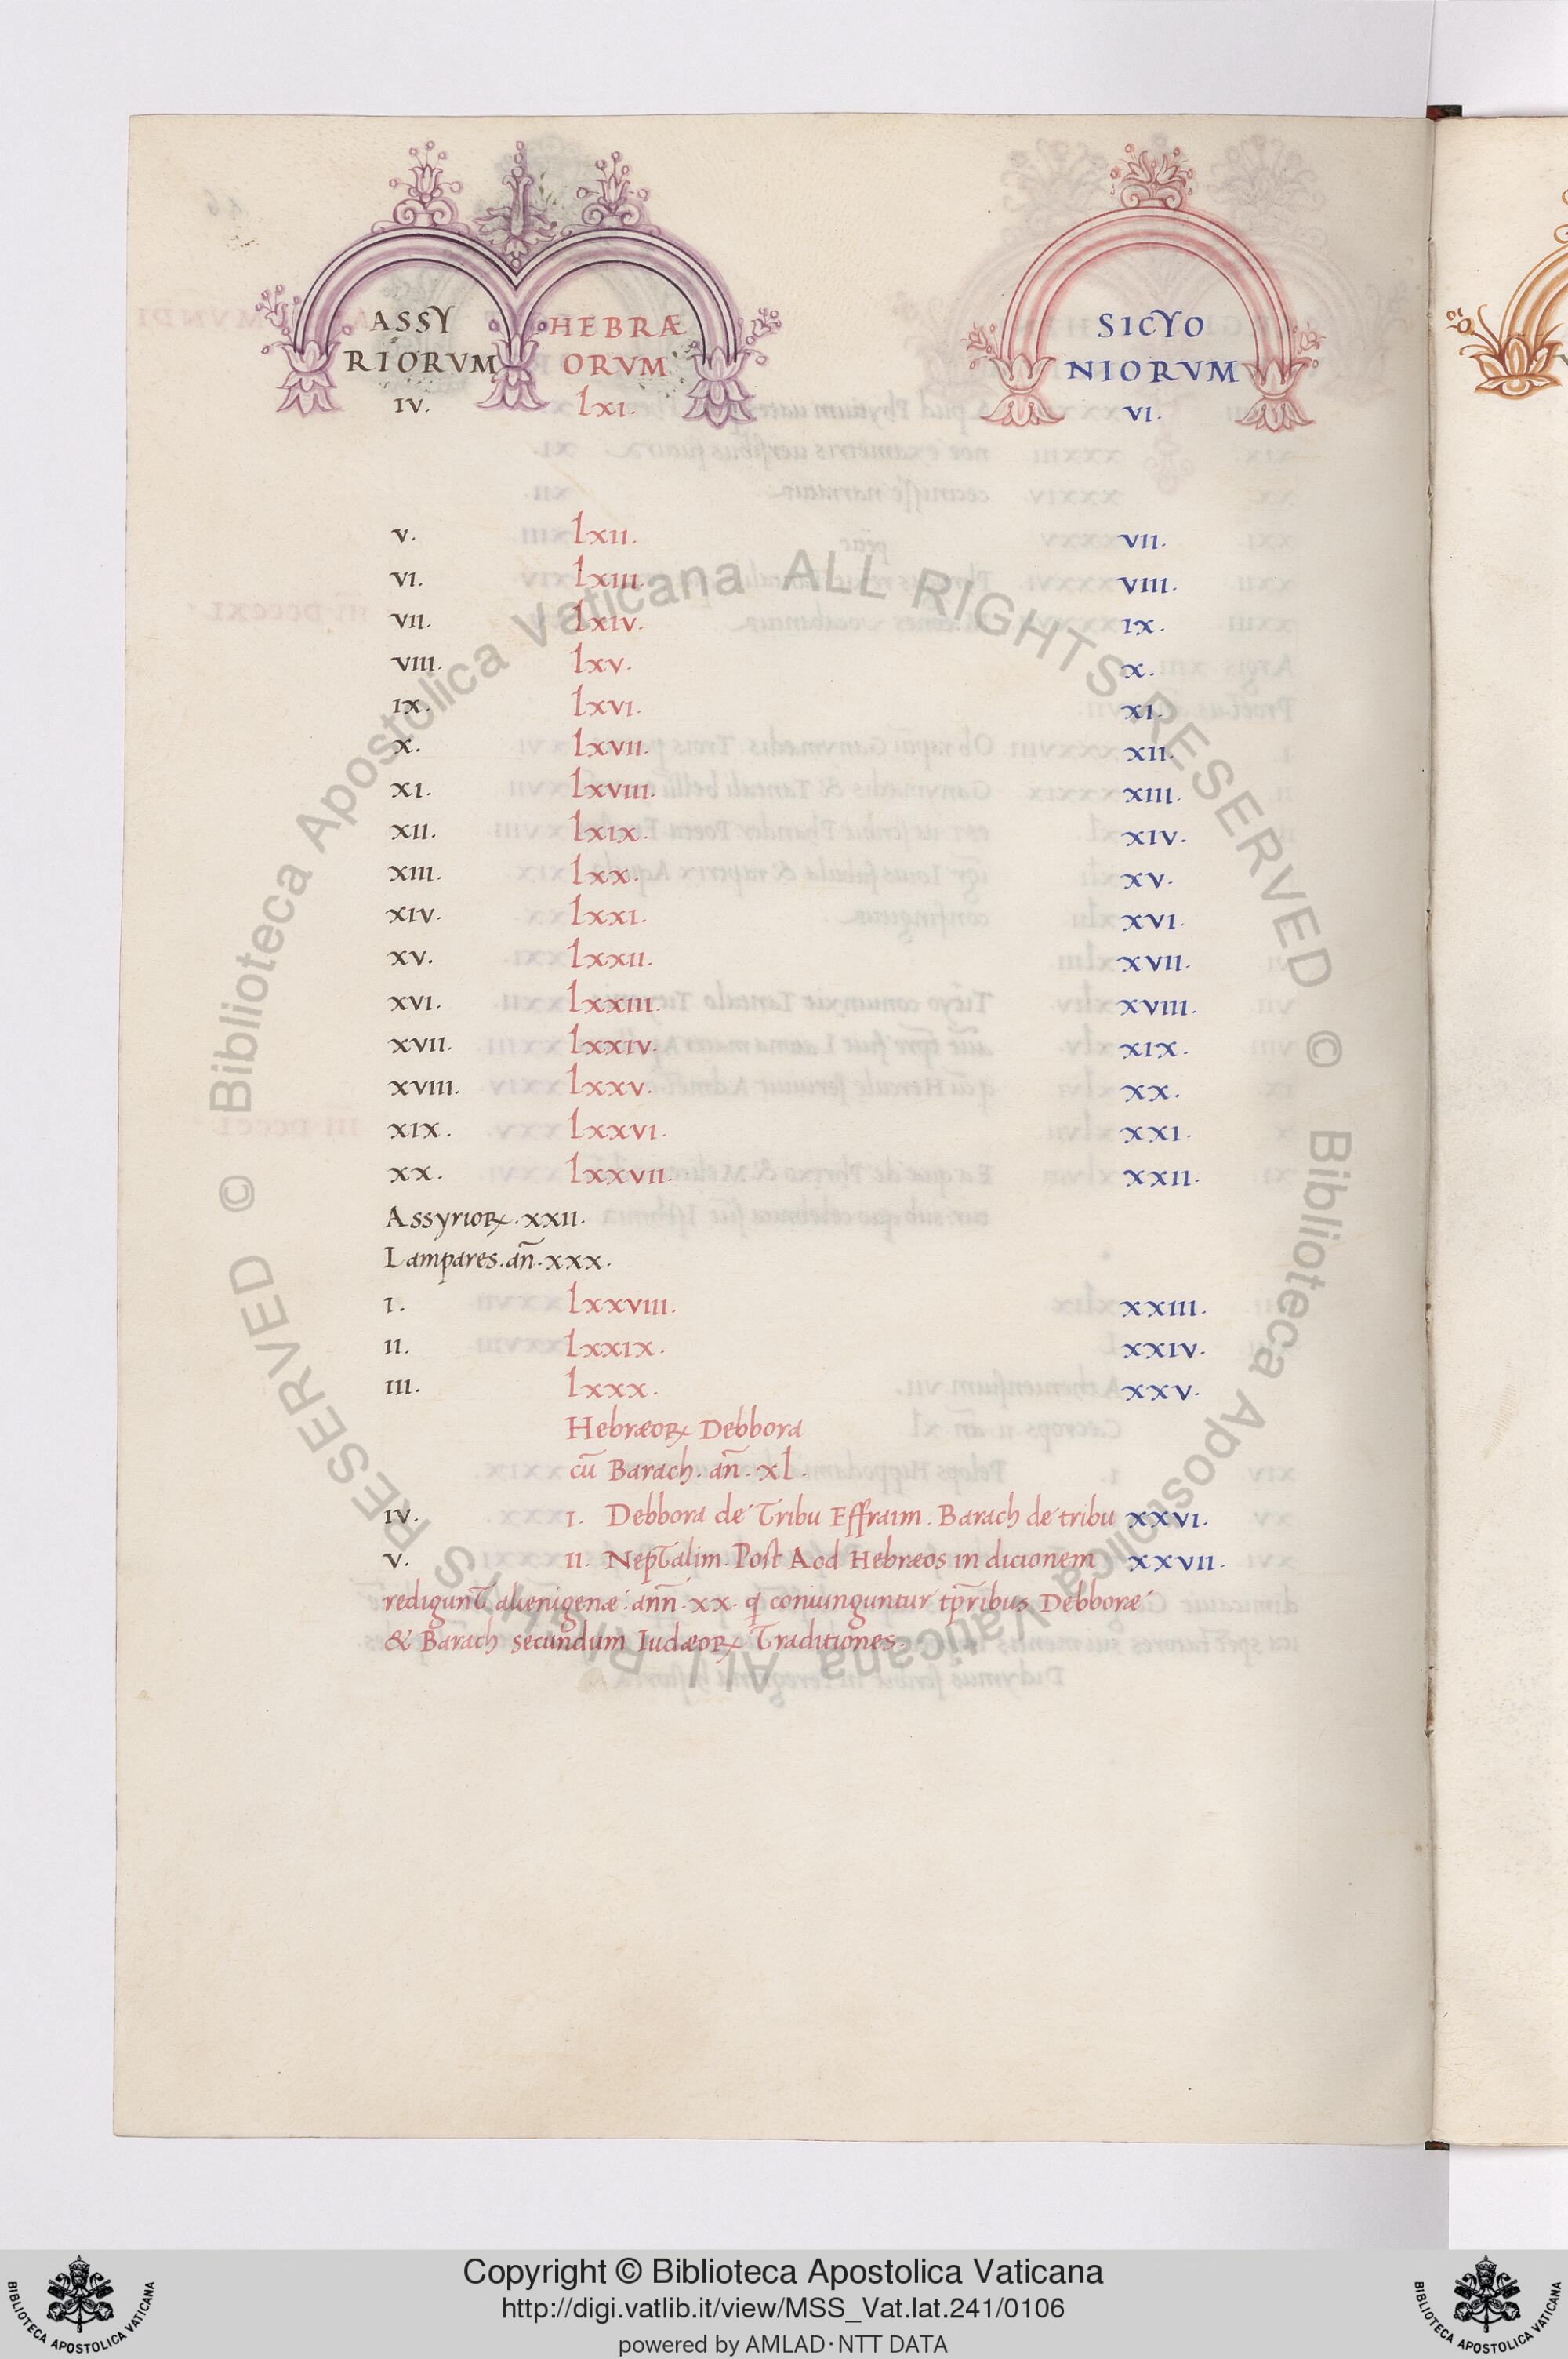 ASSY HEBRÆ SICYO
RIORVM ORVM NIORVM
IV. lxI. VI.
V. lxII. VII.
VI. lxIII. VIII.
VII. lxIV. IX.
VIII. lxV. X.
IX. lxVI. XI.
X. lxVII. XII.
XI. lxVIII. XIII.
XII. lxIX. XIV.
XIII. lxx. XV.
XIV. lxxI. XVI.
XV. lxxII. XVII.
XVI. lxxIII. XVIII.
XVII. lxxIV. XIX.
XVIII. lxxV. XX.
XIX. lxxVI. XXI.
XX. lxxVII. XXII.
Assyrioꝝ.XXII.
Lampares.an̄.XXX.
I. lxxVIII. XXIII.
II. lxxIX. XXIV.
III. lxxx. XXV.
Hebræoꝝ Debbora
cū Barach. an̄. xl.
IV. I. Debbora de Tribu Effraim. Barach de tribu XXVI.
V. II. Neptalim. Post Aod Hebræos in dicionem XXVII.
redigunt̄ alienigenæ. an̄n. XX. q coniunguntur tp̄ribus Debboræ
& Barach secundum Iudæoꝝ Traditiones.
© Biblioteca Apostolica Vaticana ALL RIGHTS RESERVED
© Biblioteca Apostolica Vaticana ALL RIGHTS RESERVED
Copyright © Biblioteca Apostolica Vaticana
http://digi.vatlib.it/view/MSS_Vat.lat.241/0106
powered by AMLAD·NTT DATA
BIBLIOTECA APOSTOLICA VATICANA
BIBLIOTECA APOSTOLICA VATICANA